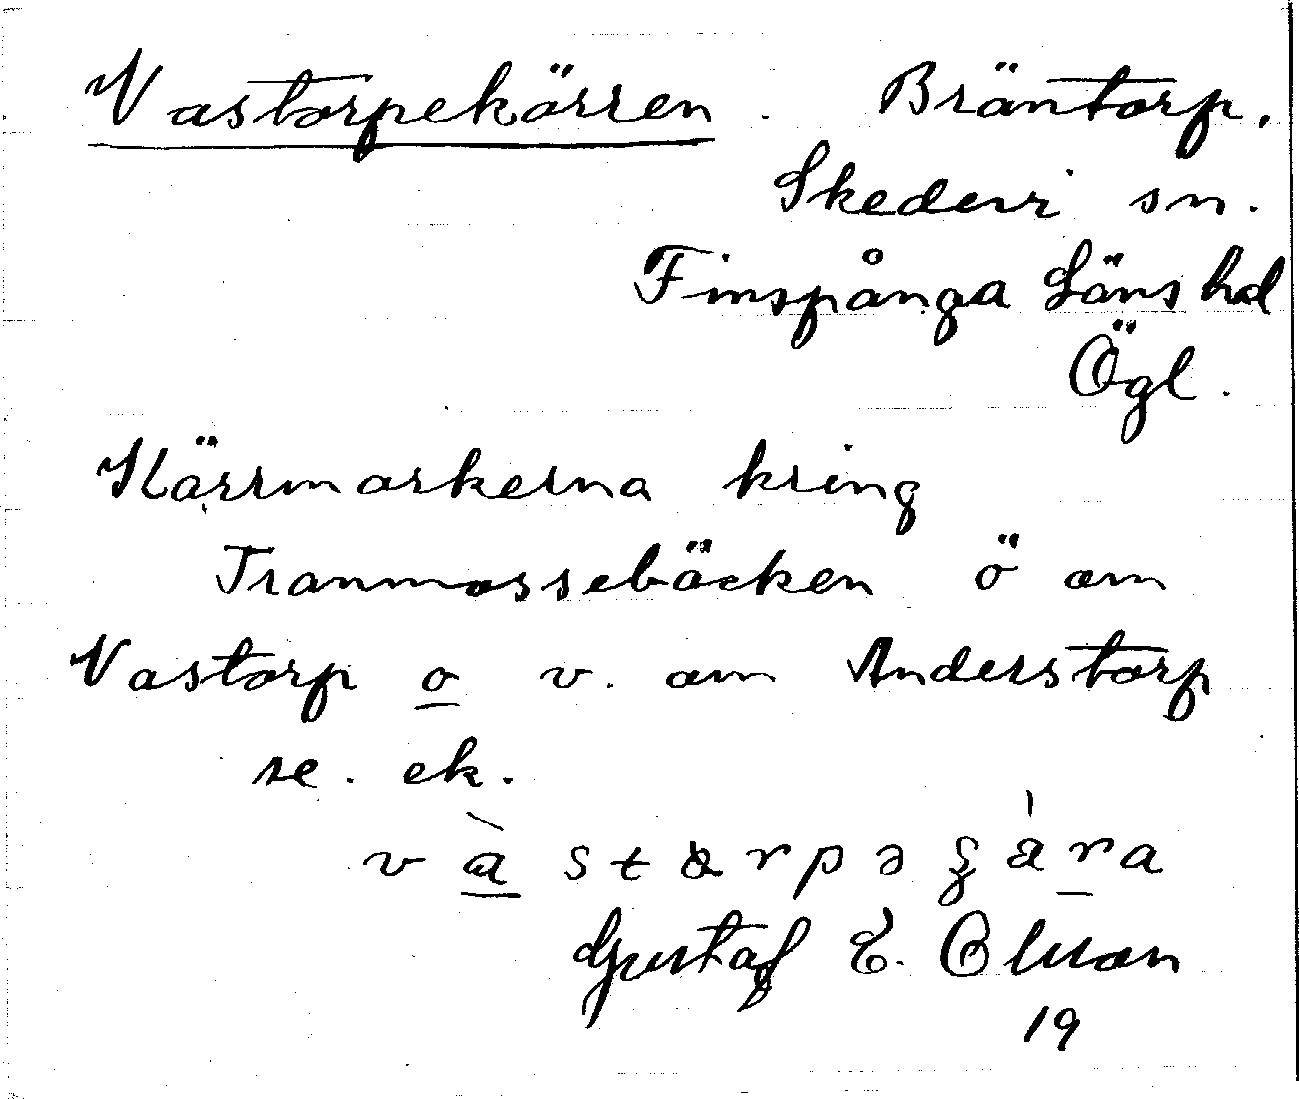 Vastorpekärren. Bräntorp,
Skedevi sn.
Finspånga Läns hd
Ögl.
Kärrmarkerna kring
Tranmossebäcken ö om
Vastorp o v. om Anderstorp
se. ek.
Gustaf E. Olsson
19